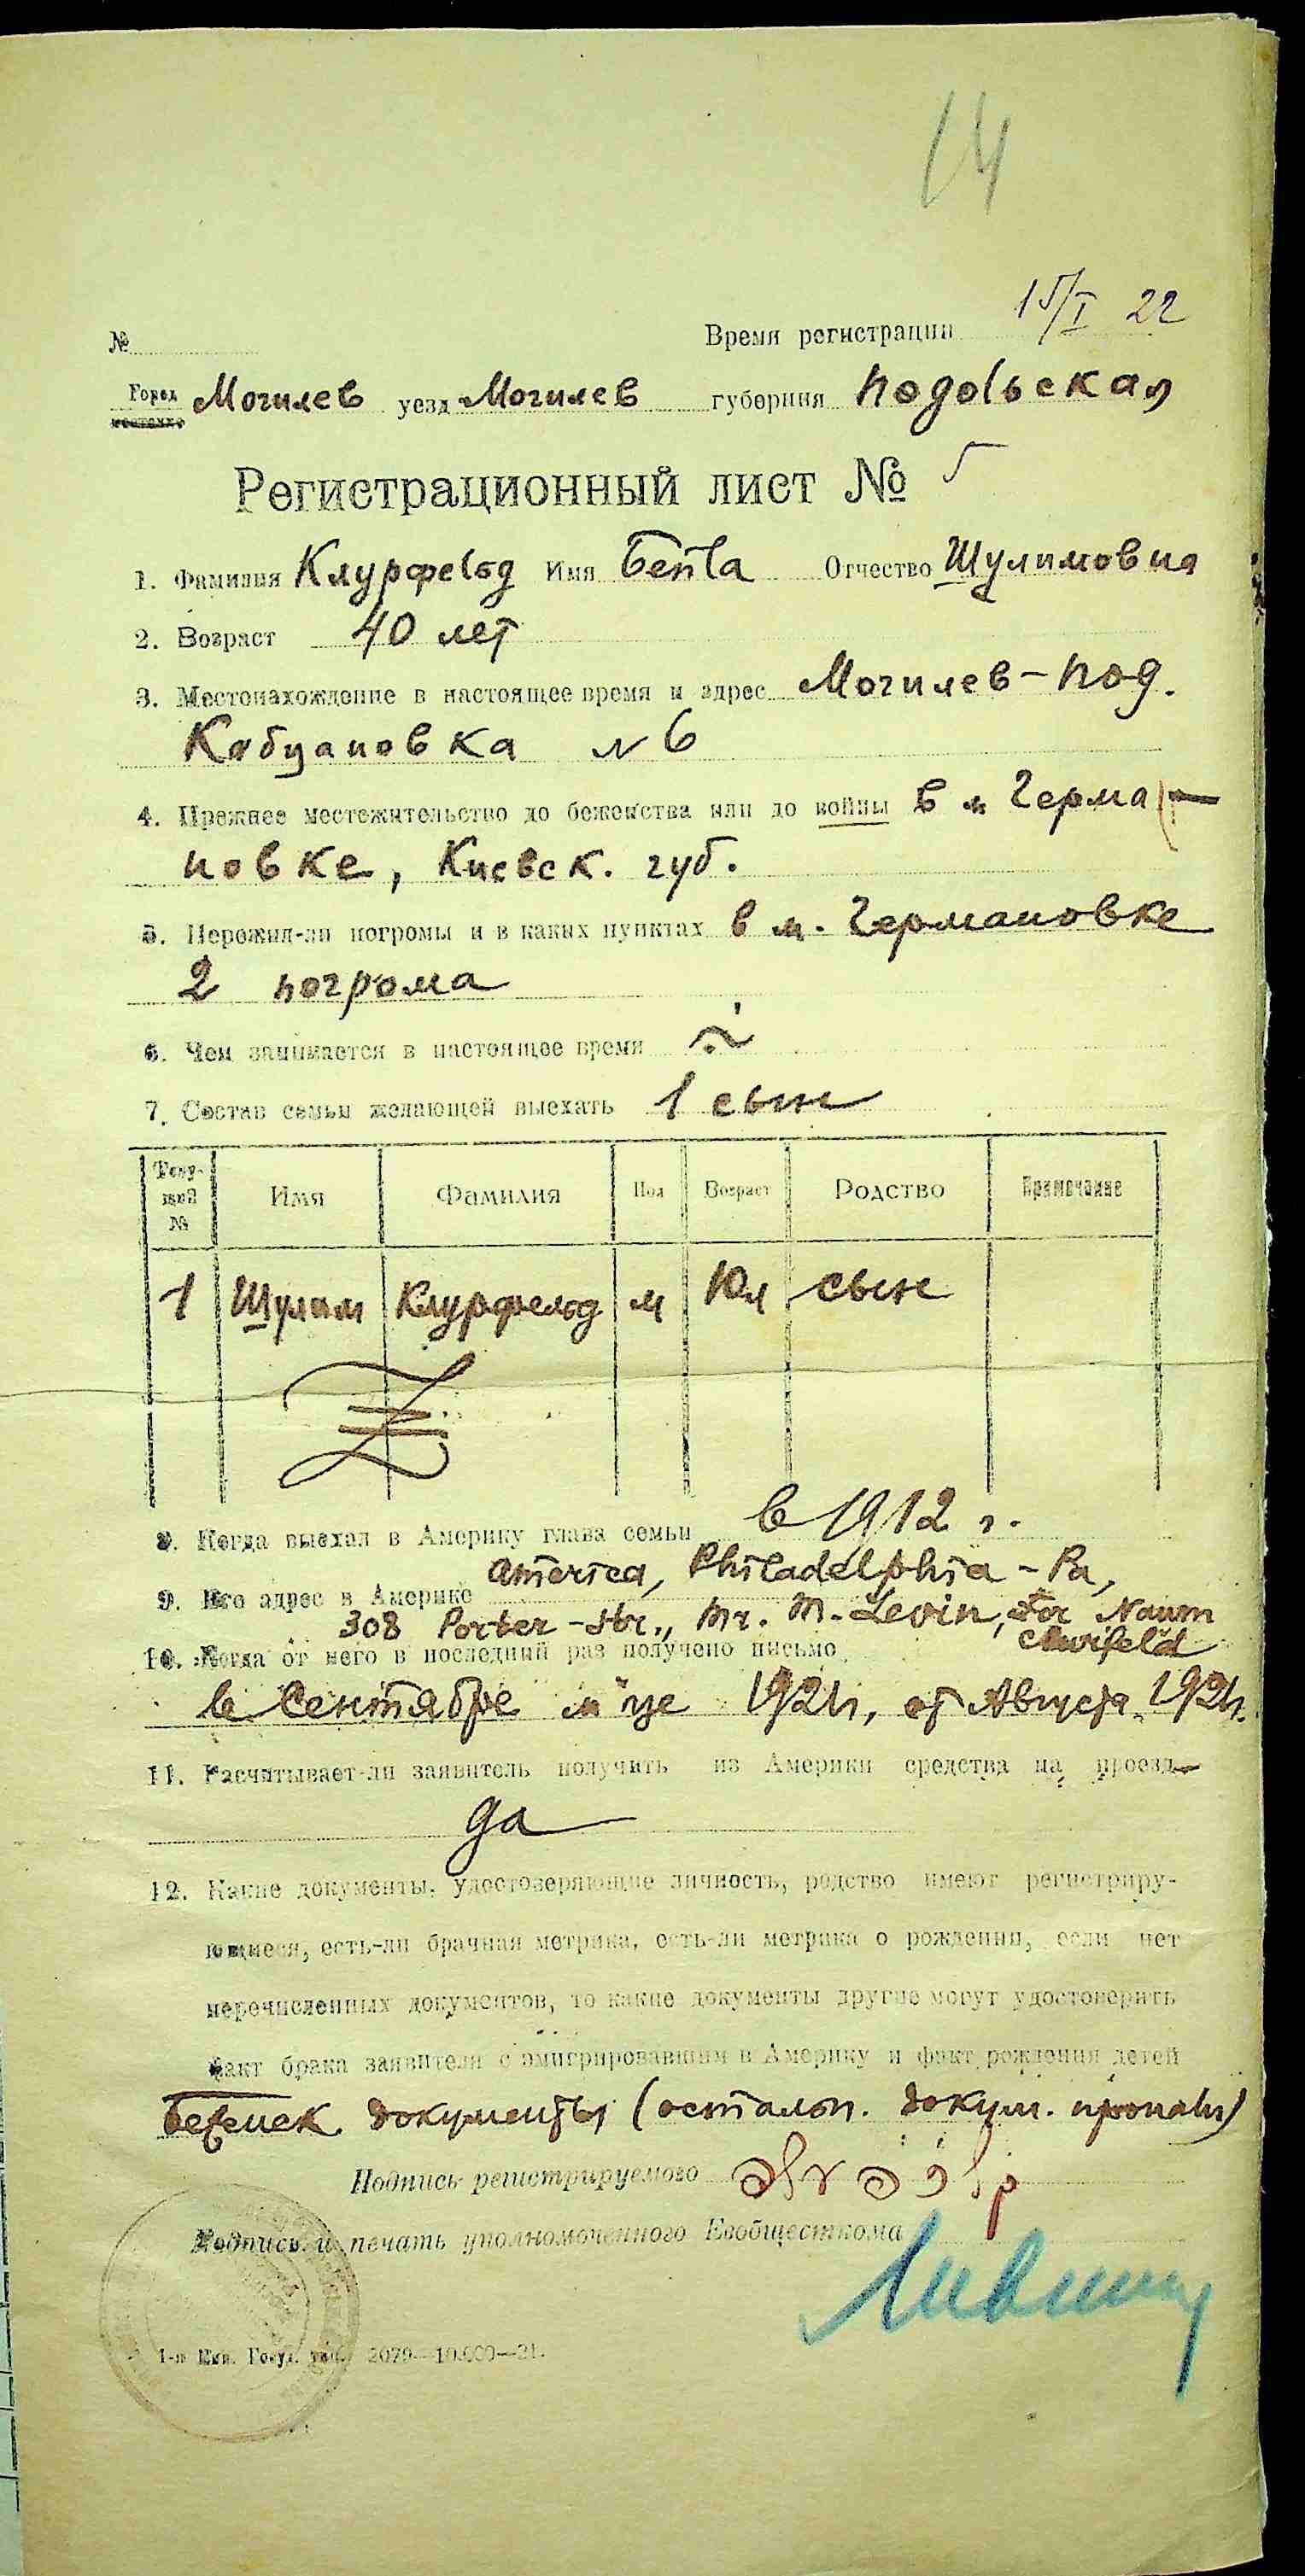 14
№ Время регистрации 15/I 22
Город местечко Могилев уезд Могилев губерния подольская
Регистрационный лист № 5
1. Фамилия Клурфельд Имя Бейла Отчество Шулимовна
2. Возраст 40 лет
3. Местонахождение в настоящее время и адрес Могилев-под.
Кабцановка № 6
4. Прежнее местожительство до беженства или до войны в м Герма-
новке, Киевск. губ.
5. Пережил-ли погромы и в каких пунктах в м. Германовке
2 погрома
6. Чем занимается в настоящее время
7. Состав семьи желающей выехать 1 сын
Теку-щий № Имя Фамилия Пол Возраст Родство Примечание
1 Шулим Клурфельд м 10 л сын
8. Когда выехал в Америку глава семьи в 1912 г.
9. Его адрес в Америке America, Philadelphia - Pa,
308 Porter-str., Mr. M. Levin, For Naum
Clurfeld
10. Когда от него в последний раз получено письмо
в Сентябре м-це 1921г, от Августа 1921г.
11. Расчитывает-ли заявитель получить из Америки средства на проезд
да
12. Какие документы, удостоверяющие личность, родство имеют регистриру-
ющиеся, есть-ли брачная метрика, есть-ли метрика о рождении, если нет
перечисленных документов, то какие документы другие могут удостоверить
факт брака заявителя с эмигрировавшим в Америку и факт рождения детей
Беженск. документы (осталън. докум. пропали)
Подпись регистрируемого
Подпись и печать уполномоченного Евобщесткома
1-я Госуд. 2079—10.000—21.